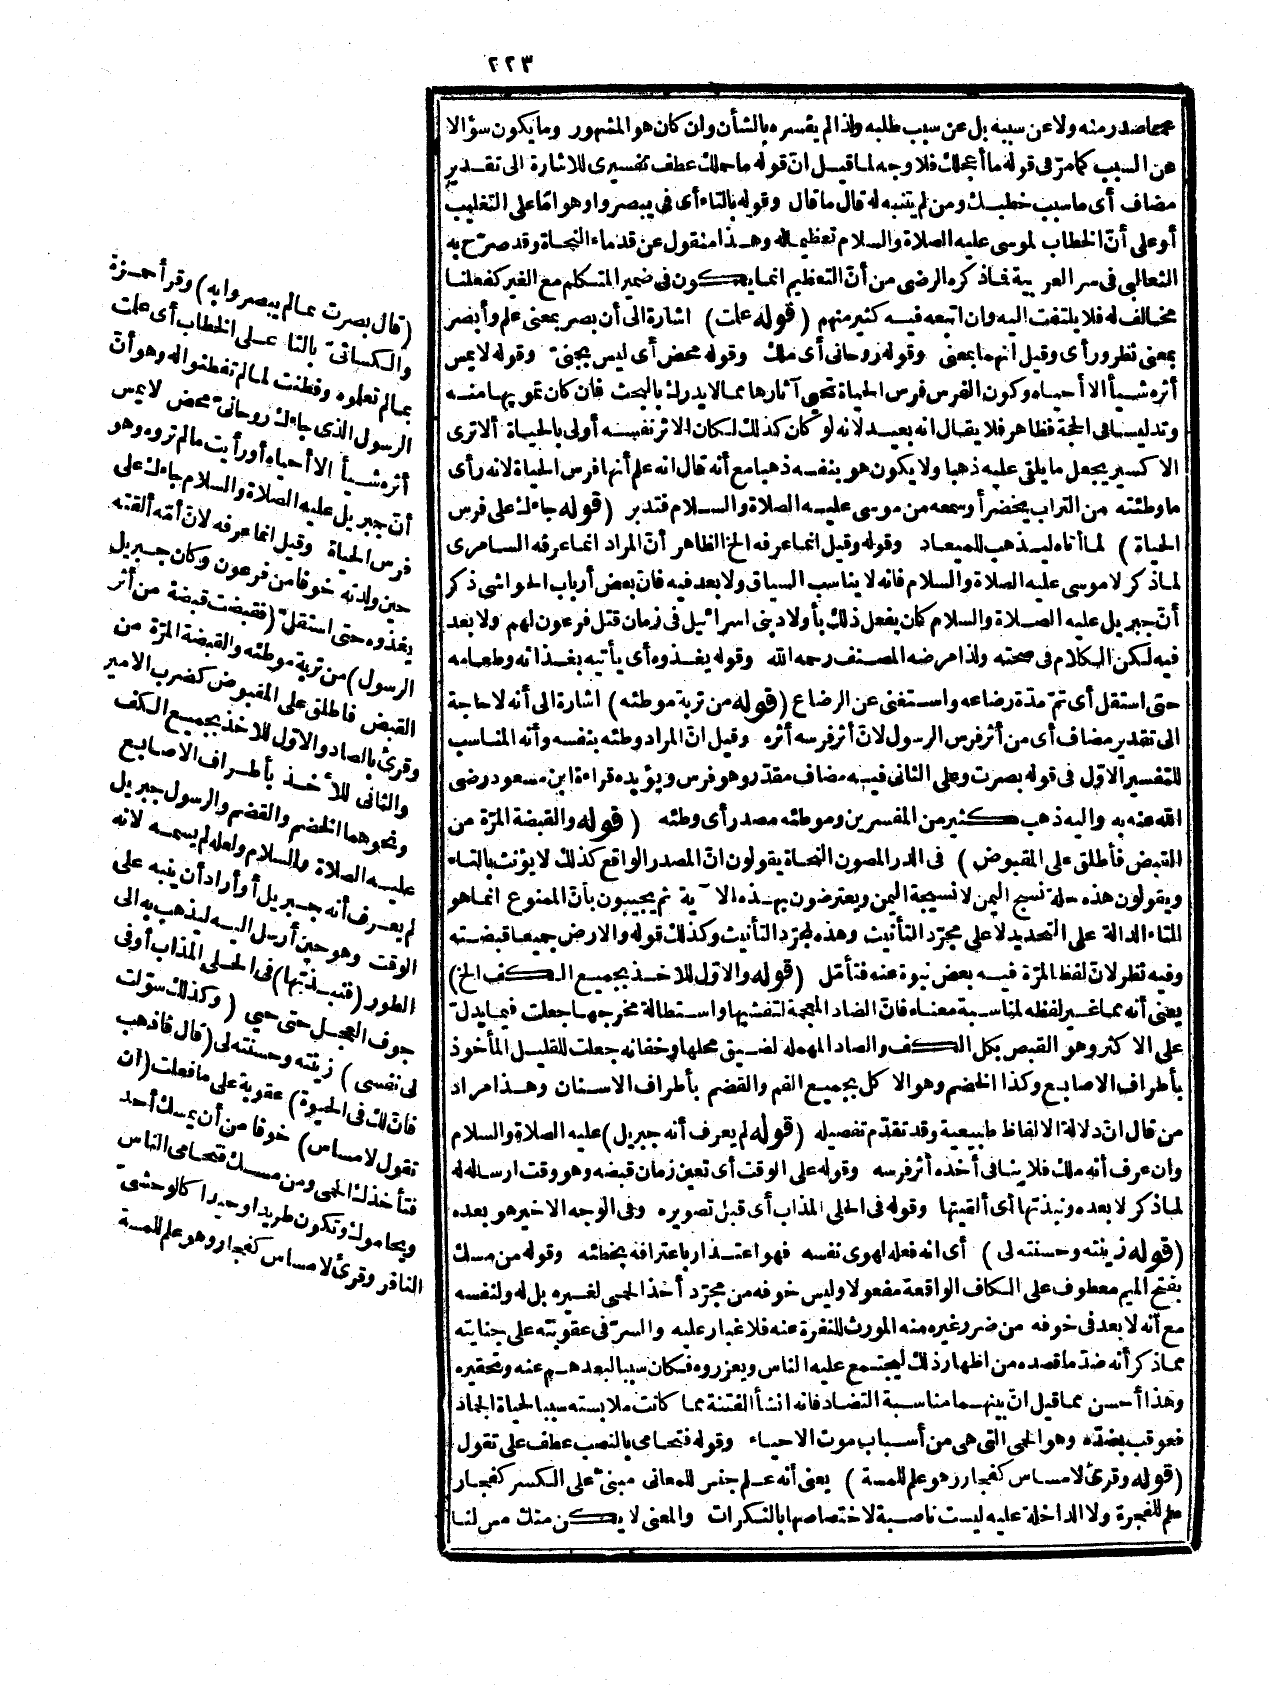 ٢٢٣
عما صدر منه ولا عن سببه بل عن سبب طلبه ولذا لم يفسره بالشأن وان كان هو المشهور وما يكون سؤالا
عن السبب كما مرّ فى قوله ما أعجلك فلا وجه لما قيل انّ قوله ما حملك عطف تفسيرى للاشارة الى تقدير
مضاف أى ما سبب خطبك ومن لم يتنبه له قال ما قال وقوله بالتاء أى فى يبصروا وهو امّا على التغليب
أو على أنّ الخطاب لموسى عليه الصلاة والسلام تعظيما له وهذا منقول عن قدماء النحاة وقد صرّح به
الثعالبى فى سر العربية فما ذكره الرضى من أنّ التعظيم انما يكون فى ضمير المتكلم مع الغير كفعلنا
مخالف له فلا يلتفت اليه وان اتبعه فيه كثير منهم (قوله علمت) اشارة الى أن بصر بمعنى علم وأبصر
بمعنى نظر ورأى وقيل انهما بمعنى وقوله روحانى أى ملك وقوله محض أى ليس بجنىّ وقوله لا يمس
أثره شيأ الا أحياه وكون الفرس فرس الحياة تحيى آثارها مما لا يدرك بالبحث فان كان تمويها منه
وتدليسا فى الحجة فظاهر فلا يقال انه بعيد لانه لو كان كذلك لكان الاثر نفسه أولى بالحياة ألا ترى
الاكسير يجعل ما يلقى عليه ذهبا ولا يكون هو بنفسه ذهبا مع أنه قال انه علم أنها فرس الحياة لانه رأى
ما وطئته من التراب يخضر أو سمعه من موسى عليه الصلاة والسلام فتدبر (قوله جاءك على فرس
الحياة) لما أتاه ليذهب للميعاد وقوله وقيل انما عرفه الخ الظاهر أنّ المراد انما عرفه السامرى
لما ذكر لا موسى عليه الصلاة والسلام فانه لا يناسب السياق ولا بعد فيه فانّ بعض أرباب الحواشى ذكر
أنّ جبريل عليه الصلاة والسلام كان يفعل ذلك بأولاد بنى اسرائيل فى زمان قتل فرعون لهم ولا بعد
فيه لكن الكلام فى صحته ولذا مرضه المصنف رحمه الله وقوله يغذوه أى يأتيه بغذائه وطعامه
حتى استقل أى تم مدّة رضاعه واستغنى عن الرضاع (قوله من تربة موطئه) اشارة الى أنه لا حاجة
الى تقدير مضاف أى من أثر فرس الرسول لانّ أثر فرسه أثره وقيل انّ المراد وطئه بنفسه وأنه المناسب
للتفسير الاوّل فى قوله بصرت وعلى الثانى فيه مضاف مقدّر وهو فرس ويؤيده قراءة ابن مسعود رضى
الله عنه به واليه ذهب كثير من المفسرين وموطئه مصدر أى وطئه (قوله والقبضة المرّة من
القبض فأطلق على المقبوض) فى الدر المصون النحاة يقولون انّ المصدر الواقع كذلك لا يؤنث بالتاء
ويقولون هذه حلة نسج اليمن لا نسيجة اليمن ويعترضون بهذه الآية ثم يجيبون بأنّ الممنوع انما هو
التاء الدالة على التحديد لا على مجرّد التأنيث وهذه لمجرّد التأنيث وكذلك قوله والارض جميعا قبضته
وفيه نظر لانّ لفظ المرّة فيه بعض نبوة عنه فتأمّل (قوله والاوّل للاخذ بجميع الكف الخ)
يعنى أنه مما غير لفظه لمناسبة معناه فانّ الضاد المعجمة لتفشيها واستطالة مخرجها جعلت فيما يدلّ
على الاكثر وهو القبض بكل الكف والصاد المهمله لضيق محلها وخفائه جعلت للقليل المأخوذ
بأطراف الاصابع وكذا الخضم وهو الاكل بجميع الفم والقضم بأطراف الاسنان وهذا مراد
من قال انّ دلالة الالفاظ طبيعية وقد تقدّم تفصيله (قوله لم يعرف أنه جبريل) عليه الصلاة والسلام
وان عرف أنه ملك فلا ينافى أخذه أثر فرسه وقوله على الوقت أى تعين زمان قبضه وهو وقت ارساله له
لما ذكر لا بعده ونبذتها أى ألقيتها وقوله فى الحلى المذاب أى قبل تصويره وفى الوجه الاخير هو بعده
(قوله زينته وحسنته لى) أى انه فعله لهوى نفسه فهو اعتذار باعترافه بخطئه وقوله من مسك
بفتح الميم معطوف على الكاف الواقعة مفعولا وليس خوفه من مجرّد أخذ الحمى لغيره بل له ولنفسه
مع أنه لا بعد فى خوفه من ضرر غيره منه المورث للنفرة عنه فلا غبار عليه والسرّ فى عقوبته على جنايته
بما ذكر أنه ضدّ ما قصده من اظهار ذلك ليجتمع عليه الناس ويعزروه فكان سببا لبعدهم عنه وتحقيره
وهذا أحسن مما قيل انّ بينهما مناسبة التضاد فانه انشأ الفتنة بما كانت ملابسته سببا لحياة الجماد
فعوقب بضدّه وهو الحمى التى هى من أسباب موت الاحياء وقوله فتحامى بالنصب عطف على تقول
(قوله وقرئ لا مساس كفجار وهو علم للمسة) يعنى أنه علم جنس للمعانى مبنىّ على الكسر كفجار
علم للفجرة ولا الداخلة عليه ليست ناصبة لاختصاصها بالنكرات والمعنى لا يكن منك مس لنا
(قال بصرت بما لم يبصروا به) وقرأ حمزة
والكسائىّ بالتا على الخطاب أى علمت
بما لم تعلموه وفطنت لما لم تفطنوا له وهو أنّ
الرسول الذى جاءك روحانىّ محض لا يمس
أثره شيأ الا أحياه أو رأيت ما لم تروه وهو
أنّ جبريل عليه الصلاة والسلام جاءك على
فرس الحياة وقيل انما عرفه لانّ أمّه ألقته
حين ولدته خوفا من فرعون وكان جبريل
يغذوه حتى استقلّ (فقبضت قبضة من أثر
الرسول) من تربة موطئه والقبضة المرّة من
القبض فاطلق على المقبوض كضرب الامير
وقرئ بالصاد والاوّل للاخذ بجميع الكف
والثانى للأخذ بأطراف الاصابع
ونحوهما الخضم والقضم والرسول جبريل
عليه الصلاة والسلام ولعله لم يسمه لانه
لم يعرف أنه جبريل أو أراد أن ينبه على
الوقت وهو حين أرسل اليه ليذهب به الى
الطور (فنبذتها) فى الحلى المذاب أو فى
جوف العجل حتى حيى (وكذلك سوّلت
لى نفسى) زينته وحسنته لى (قال فاذهب
فانّ لك فى الحيوة) عقوبة على ما فعلت (أن
تقول لا مساس) خوفا من أن يمسك أحد
فتأخذك الحمى ومن مسك فتحامى الناس
ويحاموك وتكون طريدا وحيدا كالوحشىّ
النافر وقرئ لا مساس كفجار وهو علم للمسة